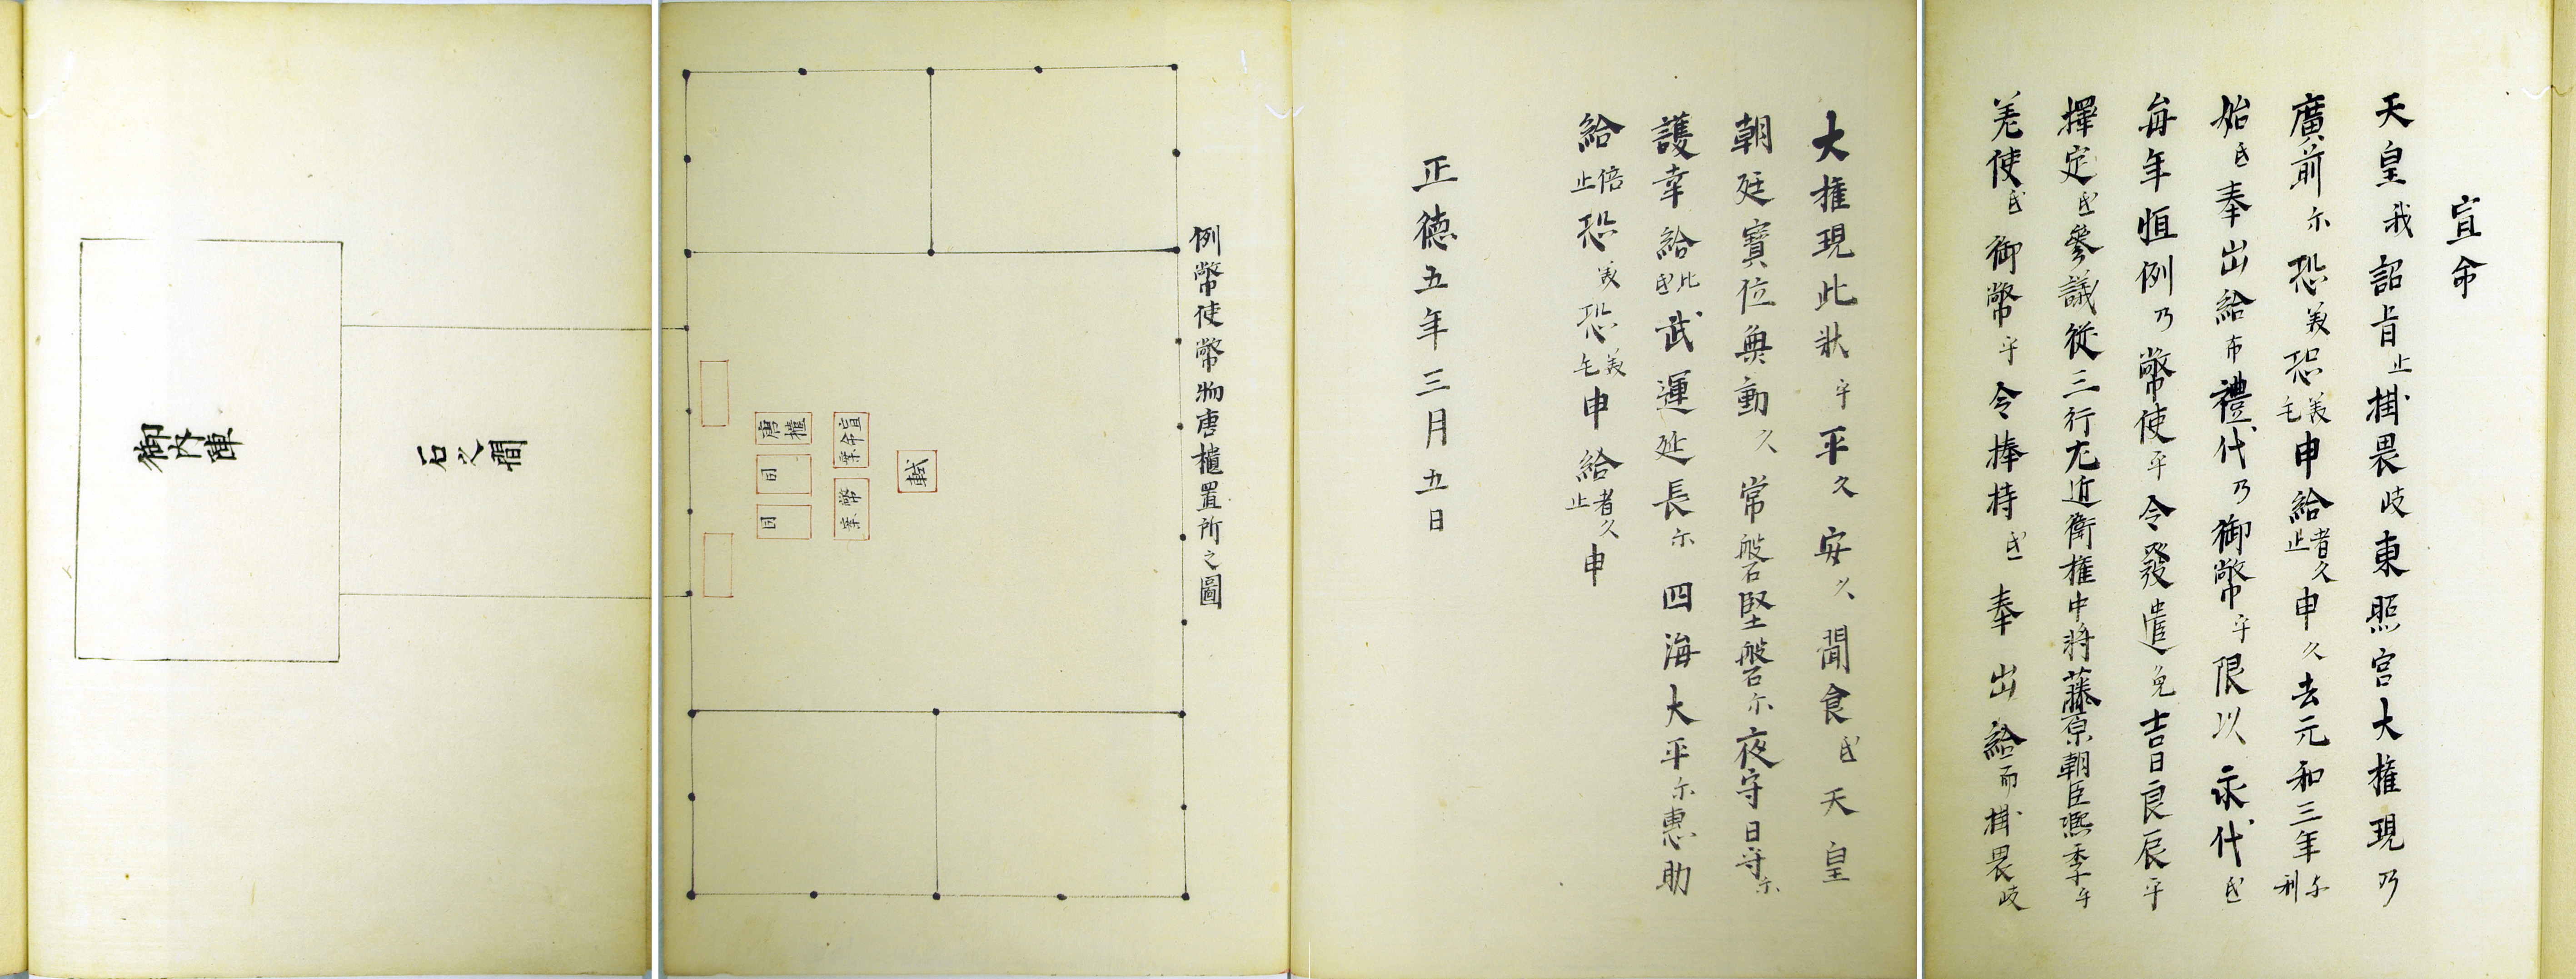 宣命
天皇我詔旨止掛畏岐東照宮大権現乃
廣前尓恐美恐美毛申給者久止申久去元和三年与利
始氐奉出給布禮代乃御幣乎限以永代氐
毎年恒例乃幣使乎令發遣免吉日良辰乎
擇定氐參議從三行左近衛権中将藤原朝臣熙季乎
差使氐御幣乎令捧持氐奉出給而掛畏岐
大権現此状乎平久安久聞食氐天皇
朝廷寳位無動久常磐堅磐尓夜守日守尓
護幸給比氐武運延長尓四海大平尓恵助
給倍止恐美恐美毛申給者久止申
正徳五年三月五日
例幣使幣物唐櫃置所之圖
軾
宣命案
幣案
唐櫃
同
同
石之間
御内陣